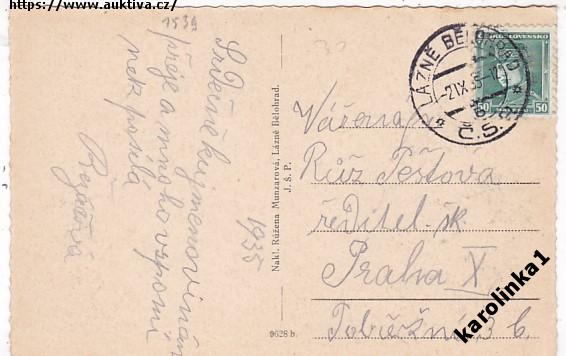 https://www.auktiva.cz/
1539
Srdečně kujmenovinám
přeje a mnoho vzpomí
nek posílá
Rezačová
1935
Nakl. Růžena Munzarová, Lázně Bělohrad.
J. Š. P.
9628 b.
LÁZNĚ BĚLOHRAD
-2.IX.35-
Č.S.
ČESKOSLOVENSKO
50 50
Váženou p.
Růž Peštova
ředitel. šk.
Praha X
Poběžná 3 b
karolinka1